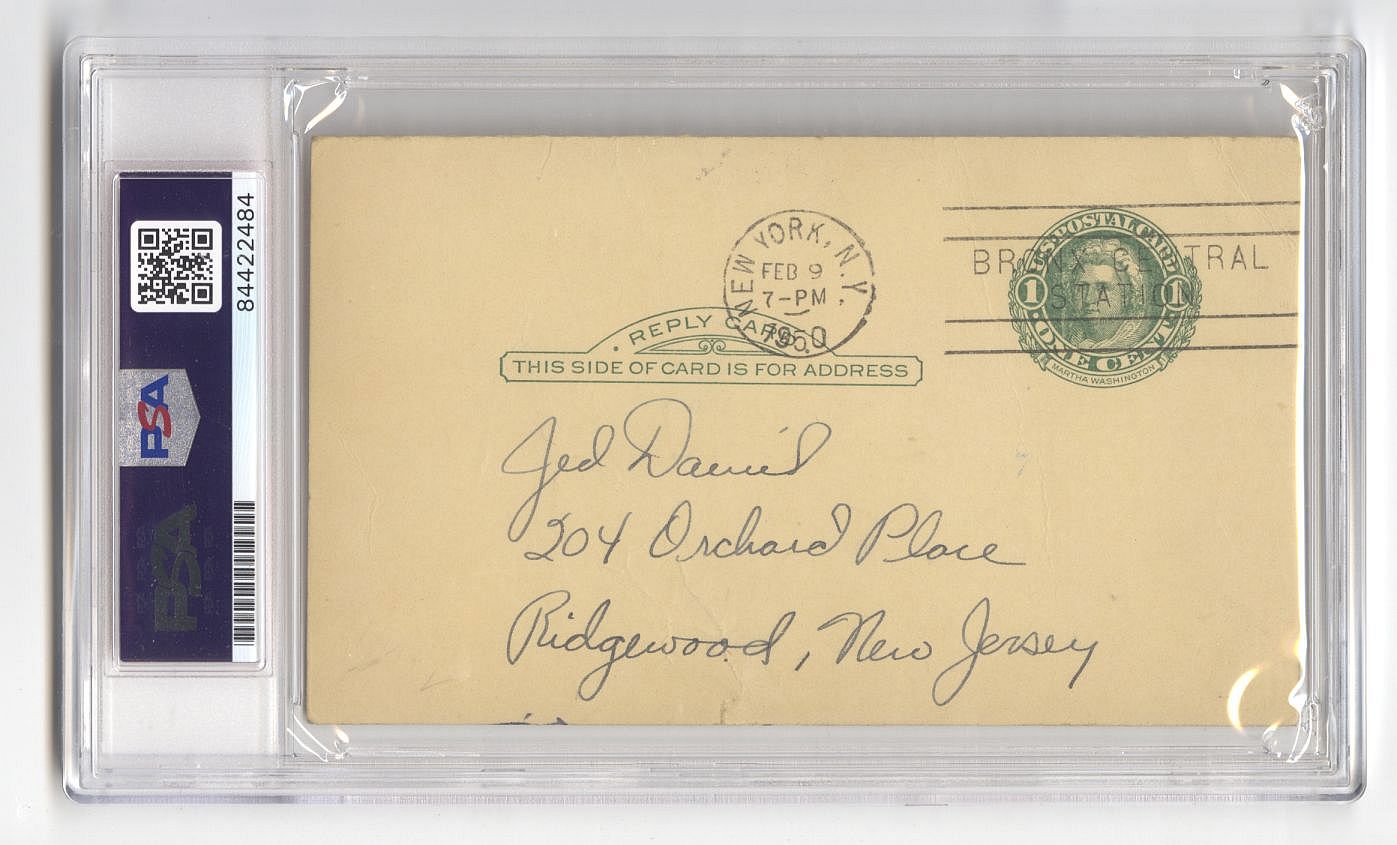 84422484
PSA
PSA
NEW YORK, N.Y.
FEB 9
7-PM
1950
BRONX CENTRAL
STATION
U.S. POSTAL CARD
1 1
ONE CENT
MARTHA WASHINGTON
REPLY CARD
THIS SIDE OF CARD IS FOR ADDRESS
Jed Daniel
204 Orchard Place
Ridgewood, New Jersey